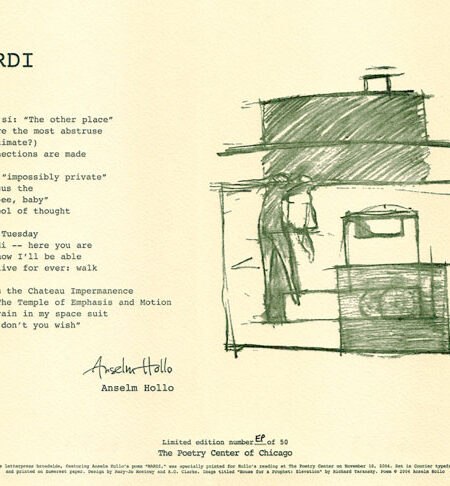 RDI
sí: "The other place"
re the most abstruse
limate?)
nections are made
"impossibly private"
cus the
bee, baby"
ool of thought
Tuesday
di -- here you are
now I'll be able
live for ever: walk
the Chateau Impermanence
The Temple of Emphasis and Motion
rain in my space suit
don't you wish"
Anselm Hollo
Anselm Hollo
Limited edition number EP of 50
The Poetry Center of Chicago
letterpress broadside, featuring Anselm Hollo's poem "MARDI," was specially printed for Hollo's reading at The Poetry Center on November 10, 2004. Set in Courier typeface
and printed on Somerset paper. Design by and H.C. Clarke. Image titled "House for a Prophet: Elevation" by Richard Taransky. Poem © 2004 Anselm Hollo